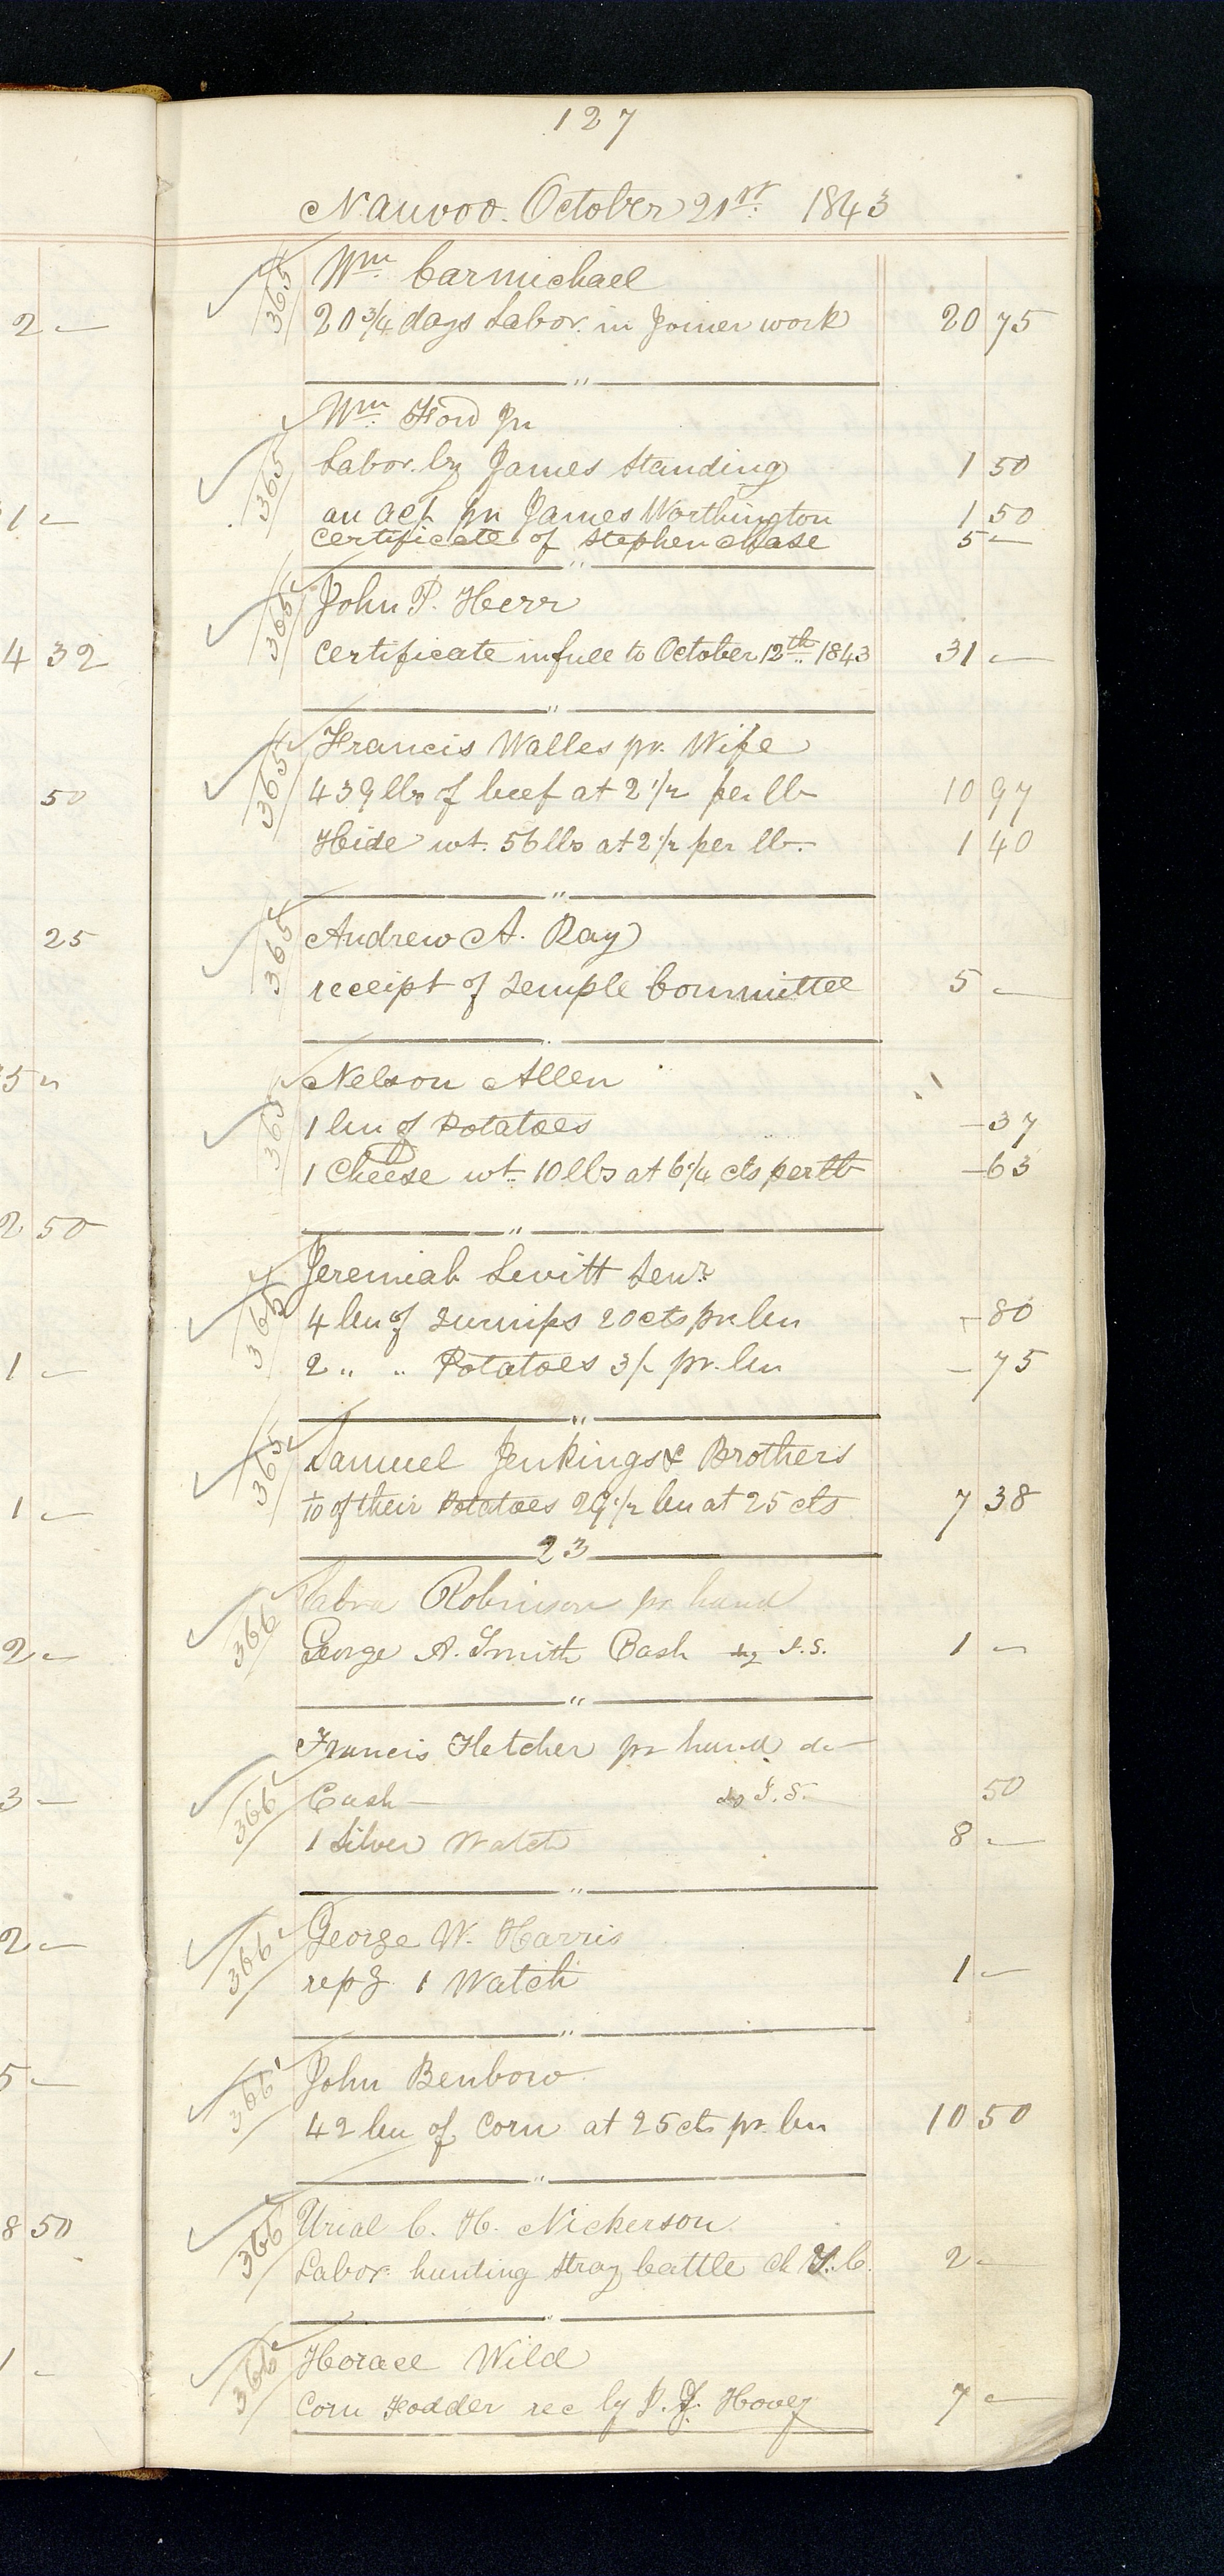 127
Nauvoo. October 21st. 1843
365 Wm. Carmichael
20 3/4 days Labor. in Joiner work 20 75
"
Wm. Ford Jr
365 Labor. by James Standing 1 50
an act pr James Worthington 1 50
certificate of Stephen Chase 5 —
"
365 John P. Herr
certificate in full to October 12th. 1843 31 —
"
365 Francis Walles pr. Wife
439 lbs of beef at 2 1/2 per lb 10 97
Hide wt. 56 lbs at 2 1/2 per lb. 1 40
"
365 Andrew A. Ray
receipt of Temple Committee 5 —
Nelson Allen
365 1 bu of Potatoes — 37
1 Cheese wt. 10 lbs at 6 1/4 cts per lb — 63
"
Jeremiah Levitt Senr.
365 4 bu of Turnips 20 cts pr bu — 80
2 " " Potatoes 3/- pr. bu — 75
"
365 Samuel Jenkings & Brothers
1/10 of their Potatoes 29 1/2 bu at 25 cts 7 38
23
Robinson pr hand
366 George A. Smith Cash by J.S. 1 —
"
Francis Fletcher pr hand do
366 Cash — by J.S. 50
1 Silver Watch 8 —
"
366 George W. Harris
repg. 1 Watch 1 —
"
366 John Benbow
42 bu of Corn at 25 cts pr. bu 10 50
"
366 Urial C. H. Nickerson
Labor. hunting stray Cattle ch T.C. 2 —
"
366 Horace Wild
Corn Fodder rec by J. J. Hovey 7 —
2 —
1 —
4 32
50
25
5 "
2 50
1 —
1 —
2 —
3 —
2 —
5 —
8 50
1 —